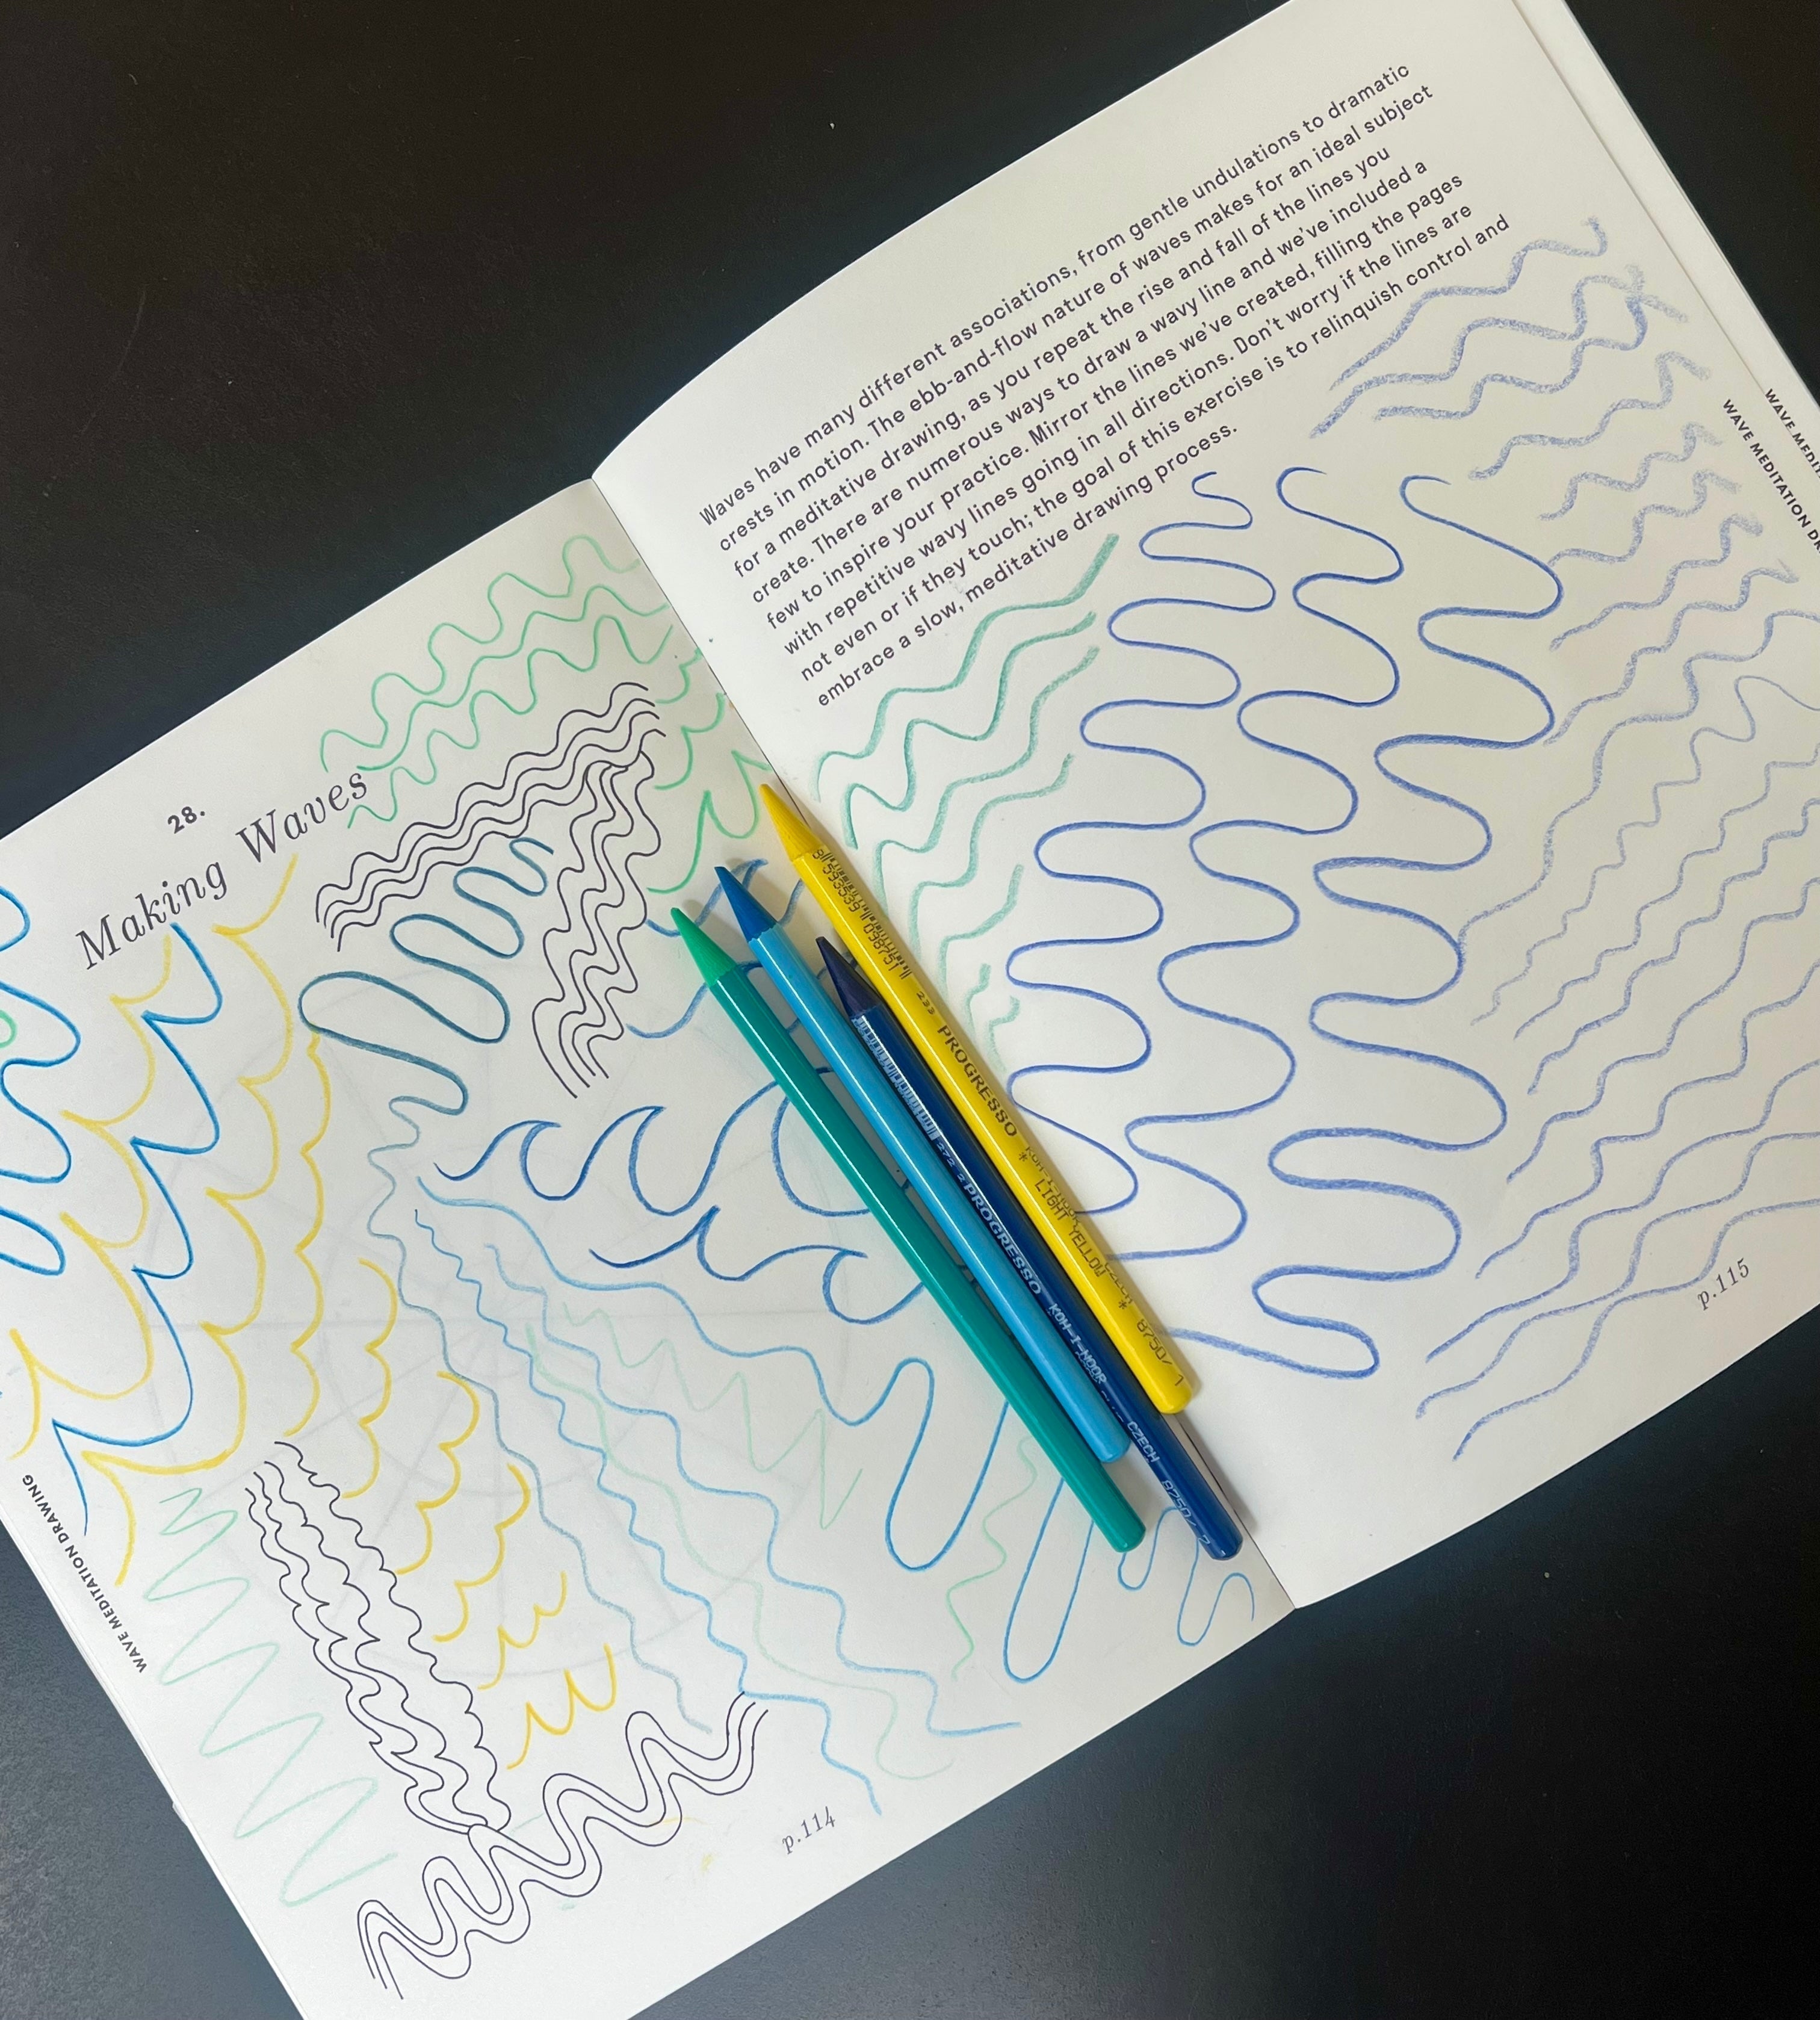 28.
Making Waves
WAVE MEDITATION DRAWING
p.114
Waves have many different associations, from gentle undulations to dramatic
crests in motion. The ebb-and-flow nature of waves makes for an ideal subject
for a meditative drawing, as you repeat the rise and fall of the lines you
create. There are numerous ways to draw a wavy line and we've included a
few to inspire your practice. Mirror the lines we've created, filling the pages
with repetitive wavy lines going in all directions. Don't worry if the lines are
not even or if they touch; the goal of this exercise is to relinquish control and
embrace a slow, meditative drawing process.
WAVE MEDITATION
p.115
PROGRESSO
LIGHT YELLOW
PROGRESSO KOH-I-NOOR
CZECH